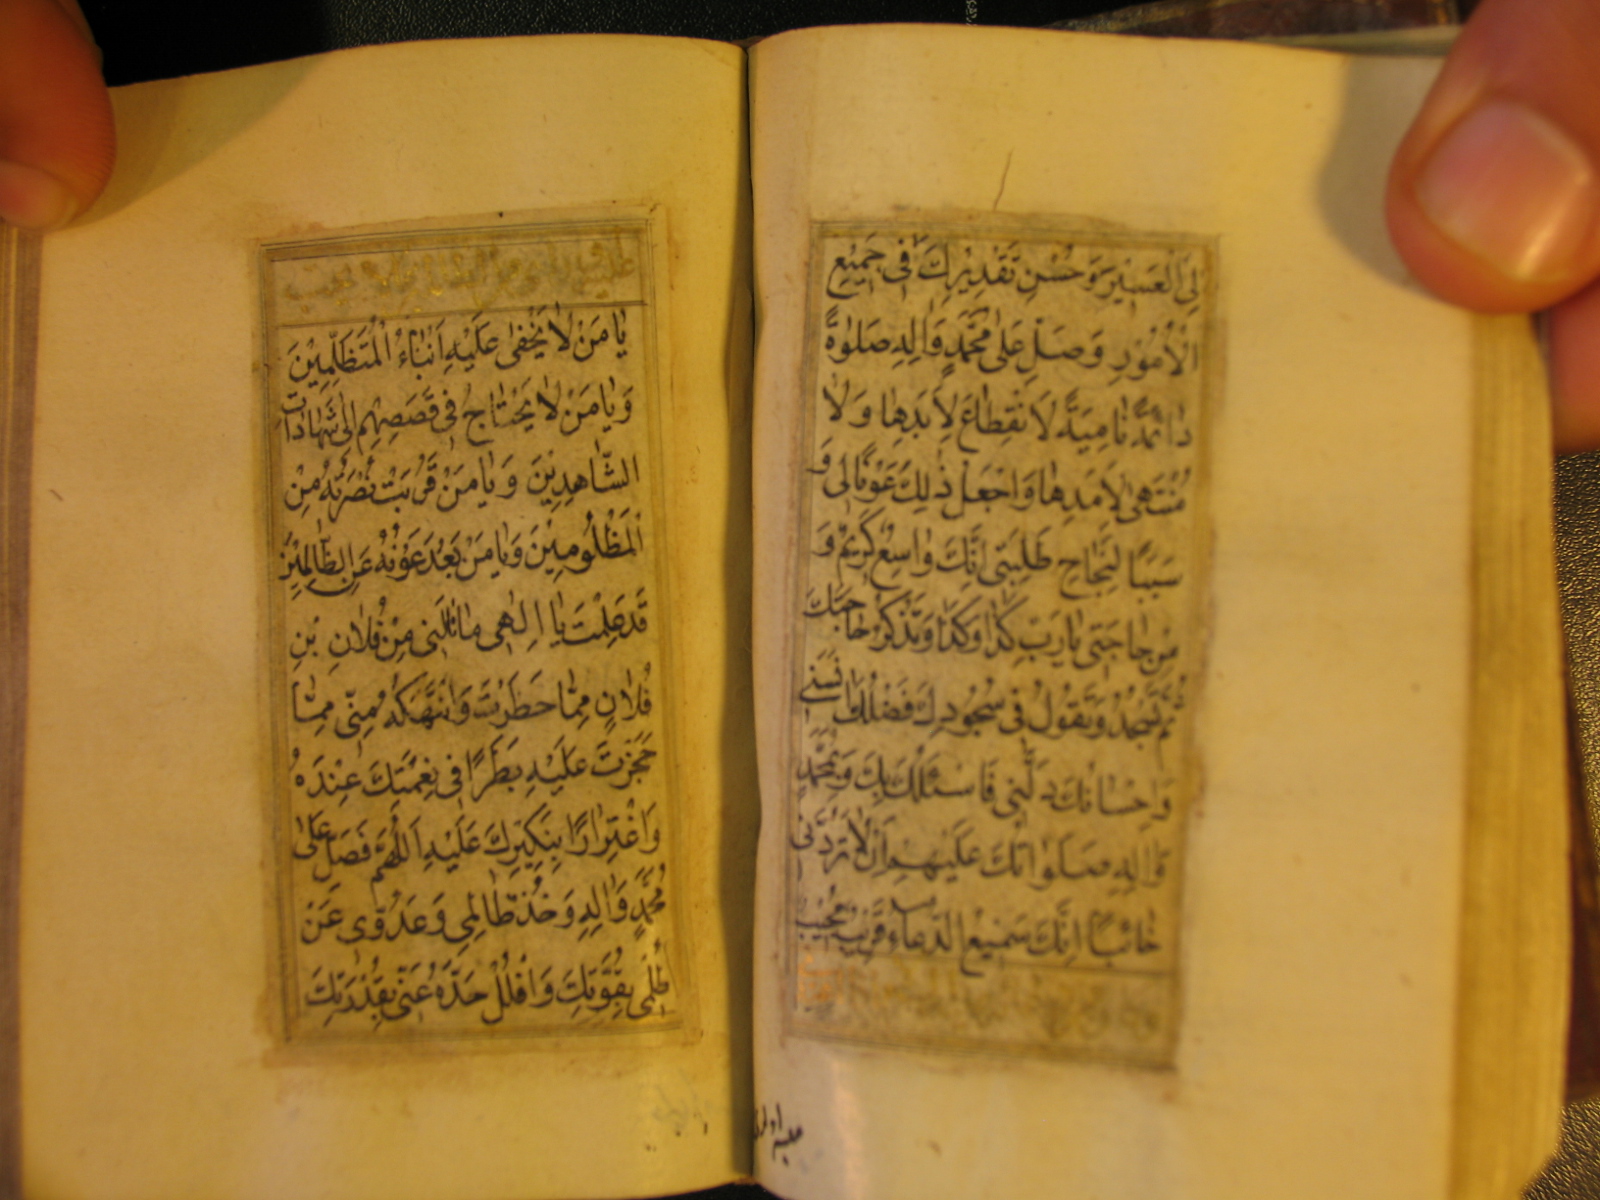 لِيَ الْعَسِيرَ وَ حُسْنِ تَقْدِيرِكَ فِى جَمِيعِ
الْأُمُورِ وَصَلِّ عَلٰى مُحَمَّدٍ وَاٰلِهِ صَلٰوةً
دَائِمَةً نَامِيَةً لَا نْقِطَاعَ لِأَبَدِهَا وَلَا
مُنْتَهٰى لِأَمَدِهَا وَاجْعَلْ ذٰلِكَ عَوْنًا لِى وَ
سَبَبًا لِنَجَاحِ طَلِبَتِى اِنَّكَ وَاسِعٌ كَرِيمٌ وَ
مِنْ حَاجَتِى يَا رَبِّ كَذَا وَكَذَا وَتَذْكُرُ حَاجَتَكَ
ثُمَّ تَسْجُدُ وَتَقُولُ فِى سُجُودِكَ فَضْلُكَ اٰنَسَنِى
وَاِحْسَانُكَ دَلَّنِى فَاَسْئَلُكَ بِكَ وَبِمُحَمَّدٍ
وَاٰلِهِ صَلَوَاتُكَ عَلَيْهِمْ اَنْ لَا تَرُدَّنِى
خَائِبًا اِنَّكَ سَمِيعُ الدُّعَاءِ قَرِيبٌ مُجِيبٌ
يَا مَنْ لَا يَخْفٰى عَلَيْهِ اَنْبَاءُ الْمُتَظَلِّمِينَ
وَيَا مَنْ لَا يَحْتَاجُ فِى قَصَصِهِمْ اِلٰى شَهَادَاتِ
الشَّاهِدِينَ وَيَا مَنْ قَرُبَتْ نُصْرَتُهُ مِنَ
الْمَظْلُومِينَ وَيَا مَنْ بَعُدَ عَوْنُهُ عَنِ الظَّالِمِينَ
قَدْ عَلِمْتَ يَا اِلٰهِى مَا نَالَنِى مِنْ فُلَانِ بْنِ
فُلَانٍ مِمَّا حَظَرْتَ وَانْتَهَكَهُ مِنِّى مِمَّا
حَجَزْتَ عَلَيْهِ بَطَرًا فِى نِعْمَتِكَ عِنْدَهُ
وَاغْتِرَارًا بِنَكِيرِكَ عَلَيْهِ اَللّٰهُمَّ فَصَلِّ عَلٰى
مُحَمَّدٍ وَاٰلِهِ وَخُذْ ظَالِمِى وَعَدُوِّى عَنْ
ظُلْمِى بِقُوَّتِكَ وَافْلُلْ حَدَّهُ عَنِّى بِقُدْرَتِكَ